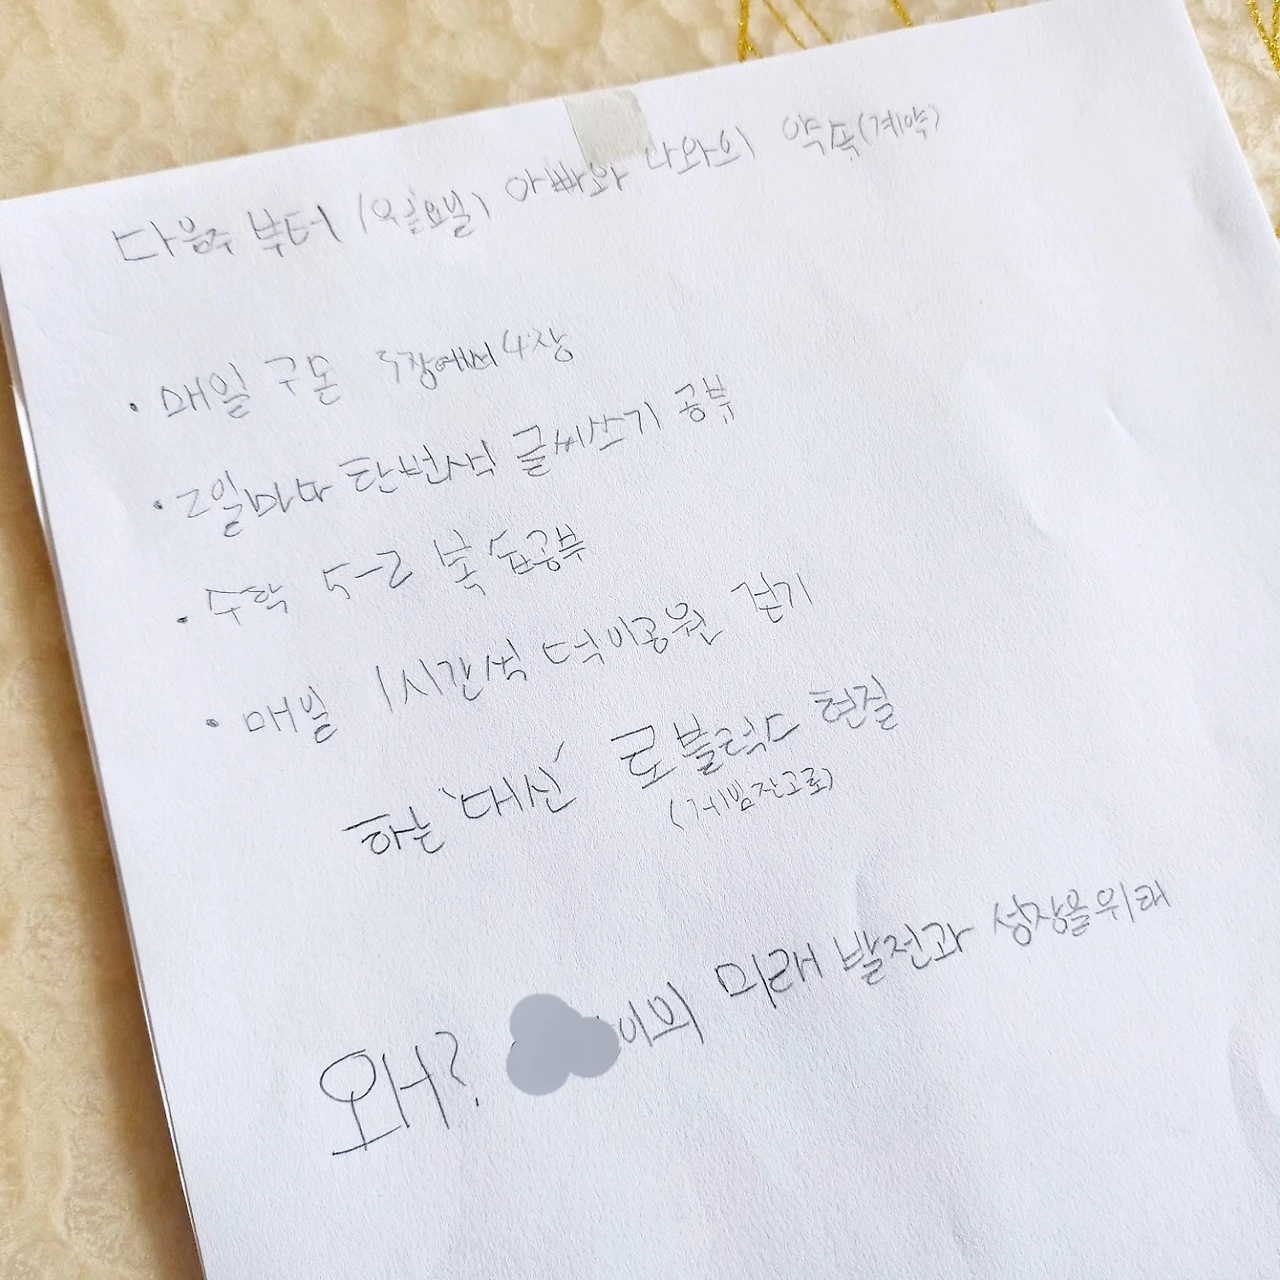 다음주 부터 (일요일) 아빠와 나와의 약속(계약)
• 매일 구몬 3장에서 4장
• 2일마다 한번씩 글씨쓰기 공부
• 수학 5-2 복습공부
• 매일 1시간씩 덕이공원 걷기
하는 대신 로블럭스 현질
(게임잔고로)
왜? 이의 미래 발전과 성장을위해